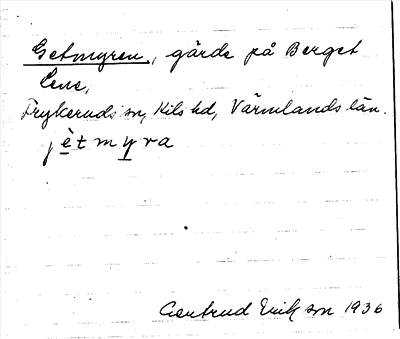 Getmyren, gärde på Berget
Lene,
Frykeruds sn, Kils hd, Värmlands län.
jètmyra
Gertrud Erikson 1936